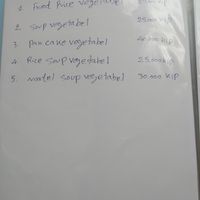 1. Fried Rice vegetabel
2. Soup vegetabel 25.000 KIP
3. Pan cake vegetabel 40.000 KIP
4. Rice Soup vegetabel 25.000 KIP
5. Soup vegetabel 30.000 KIP